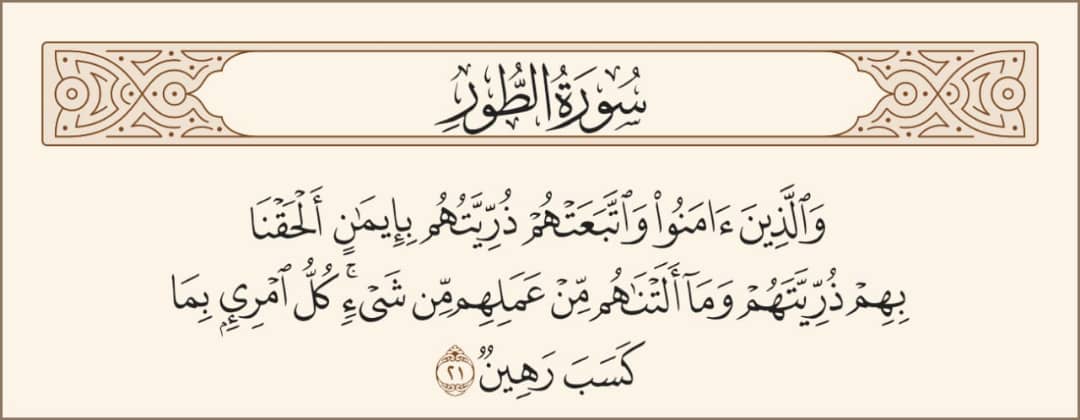 سُورَةُ الطُّورِ
وَٱلَّذِينَ ءَامَنُوا۟ وَٱتَّبَعَتْهُمْ ذُرِّيَّتُهُم بِإِيمَـٰنٍ أَلْحَقْنَا
بِهِمْ ذُرِّيَّتَهُمْ وَمَآ أَلَتْنَـٰهُم مِّنْ عَمَلِهِم مِّن شَىْءٍۢ ۚ كُلُّ ٱمْرِئٍۭ بِمَا
كَسَبَ رَهِينٌۭ ٢١